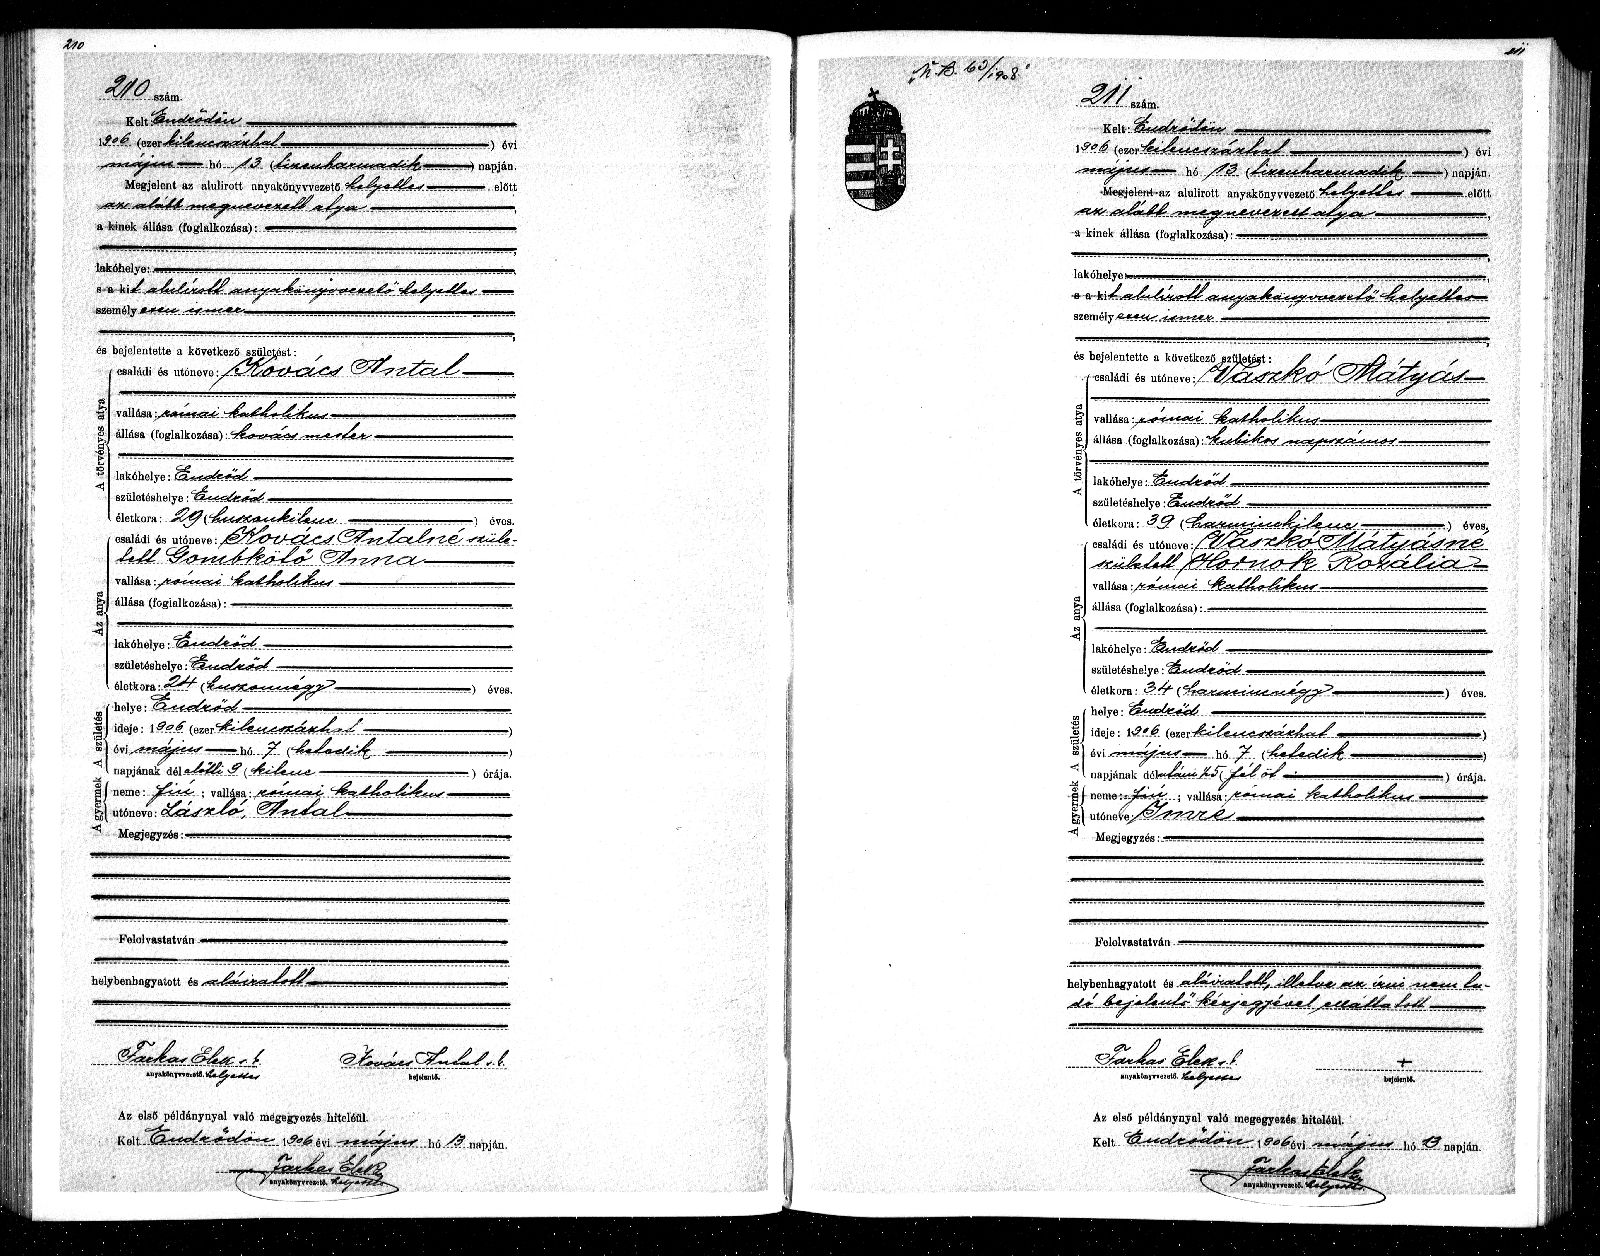 210
210 szám.
Kelt: Endrődön
1906 (ezer kilencszázhat) évi
május hó 13 (tizenharmadik) napján.
Megjelent az alulirott anyakönyvvezető helyettes előtt
az alább megnevezett atya,
a kinek állása (foglalkozása):
lakóhelye:
s a kit alulírott anyakönyvvezető helyettes
személyesen ismer
és bejelentette a következő születést:
A törvényes atya
családi és utóneve: Kovács Antal
vallása: római katholikus
állása (foglalkozása): kovács mester
lakóhelye: Endrőd
születéshelye: Endrőd
életkora: 29 (huszonkilenc) éves.
Az anya
családi és utóneve: Kovács Antalné szüle-
tett Gombkötő Anna
vallása: római katholikus
állása (foglalkozása):
lakóhelye: Endrőd
születéshelye: Endrőd
életkora: 24 (huszonnégy) éves.
A születés
helye: Endrőd
ideje: 1906 (ezer kilencszázhat)
évi május hó 7 (hetedik)
napjának délelőtti 9 (kilenc) órája.
A gyermek
neme: fiú; vallása: római katholikus
utóneve: László, Antal
Megjegyzés:
Felolvastatván
helybenhagyatott és aláiratott
Farkas Elek s. k. Kovács Antal s. k.
anyakönyvvezető. helyettes bejelentő.
Az első példánynyal való megegyezés hiteléül.
Kelt Endrődön 1906 évi május hó 13 napján.
Farkas Elek
anyakönyvvezető. helyettes
211
"N. B. 63/1908"
211 szám.
Kelt: Endrődön
1906 (ezer kilencszázhat) évi
május hó 13 (tizenharmadik) napján.
Megjelent az alulirott anyakönyvvezető helyettes előtt
az alább megnevezett atya,
a kinek állása (foglalkozása):
lakóhelye:
s a kit alulírott anyakönyvvezető helyettes
személyesen ismer
és bejelentette a következő születést:
A törvényes atya
családi és utóneve: Vaszkó Mátyás
vallása: római katholikus
állása (foglalkozása): kubikos napszámos
lakóhelye: Endrőd
születéshelye: Endrőd
életkora: 39 (harminckilenc) éves,
Az anya
családi és utóneve: Vaszkó Mátyásné
született Hornok Rozália
vallása: római katholikus
állása (foglalkozása):
lakóhelye: Endrőd
születéshelye: Endrőd
életkora: 34 (harmincnégy) éves.
A születés
helye: Endrőd
ideje: 1906 (ezer kilencszázhat)
évi május hó 7 (hetedik)
napjának délutáni ½5 (fél öt) órája.
A gyermek
neme: fiú; vallása: római katholikus
utóneve: Imre
Megjegyzés:
Felolvastatván
helybenhagyatott és aláiratott, illetve az írni nem tu-
dó bejelentő kézjegyével elláttatott
Farkas Elek s. k. +
anyakönyvvezető. helyettes bejelentő.
Az első példánynyal való megegyezés hiteléül.
Kelt Endrődön 1906 évi május hó 13 napján.
Farkas Elek
anyakönyvvezető. helyettes